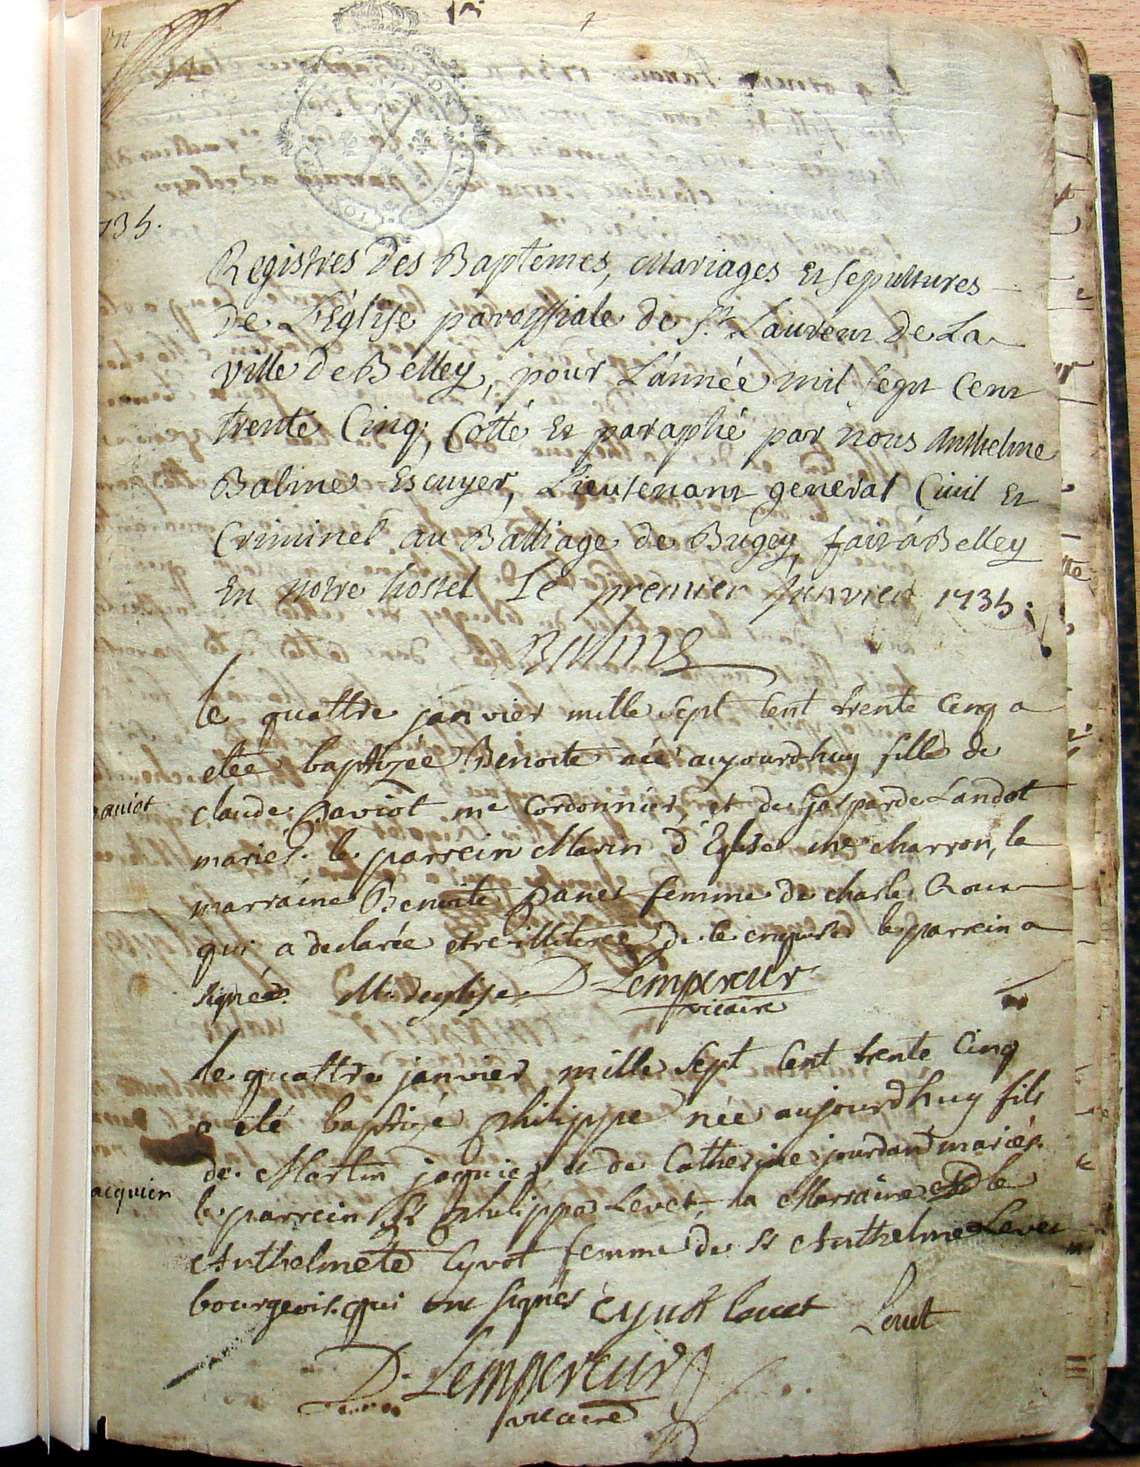 1735.
Registres des Baptemes, Mariages et sepultures
de L'Église paroissiale de st Laurent de La
ville de Belley, pour L'année mil sept cent
trente Cinq, Cotté et paraphé par nous Anthelme
Balme Escuyer, Lieutenant general Civil et
Criminel au Balliage de Bugey, fait à Belley
en notre hostel Le premier Janvier 1735.
Balme
le quattre janvier mille sept cent trente cinq a
etée baptizée Benoite née aujourdhuy fille de
claude Daviot me Cordonnier, et de gasparde Landot
mariés. le parrein Marin d'Eglise me charron, la
marraine Benoite panet femme de charle Roux
qui a declarée etre illiterée de ce enquise le parrein a
signéz. M. deglise D Lempereur
vicaire
le quattre janvier mille sept cent trente cinq
a eté baptizé philippe née aujourdhuy fils
de Martin jaquier et de Catherine jourdan mariés.
acquier
le parrein sr philippe Levet, la Marraine dlle
Anthelmete Cyvot femme de sr Anthelme Levet
bourgeois. qui ont signés Cyvot levet Levet
D. Lempereur
vicaire